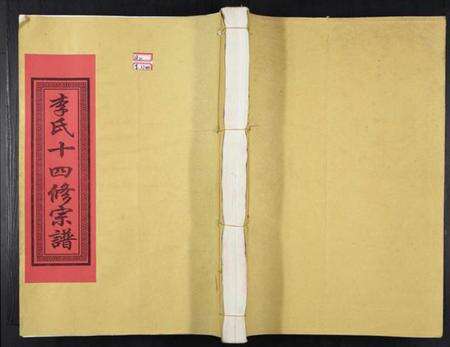 李氏十四修宗譜